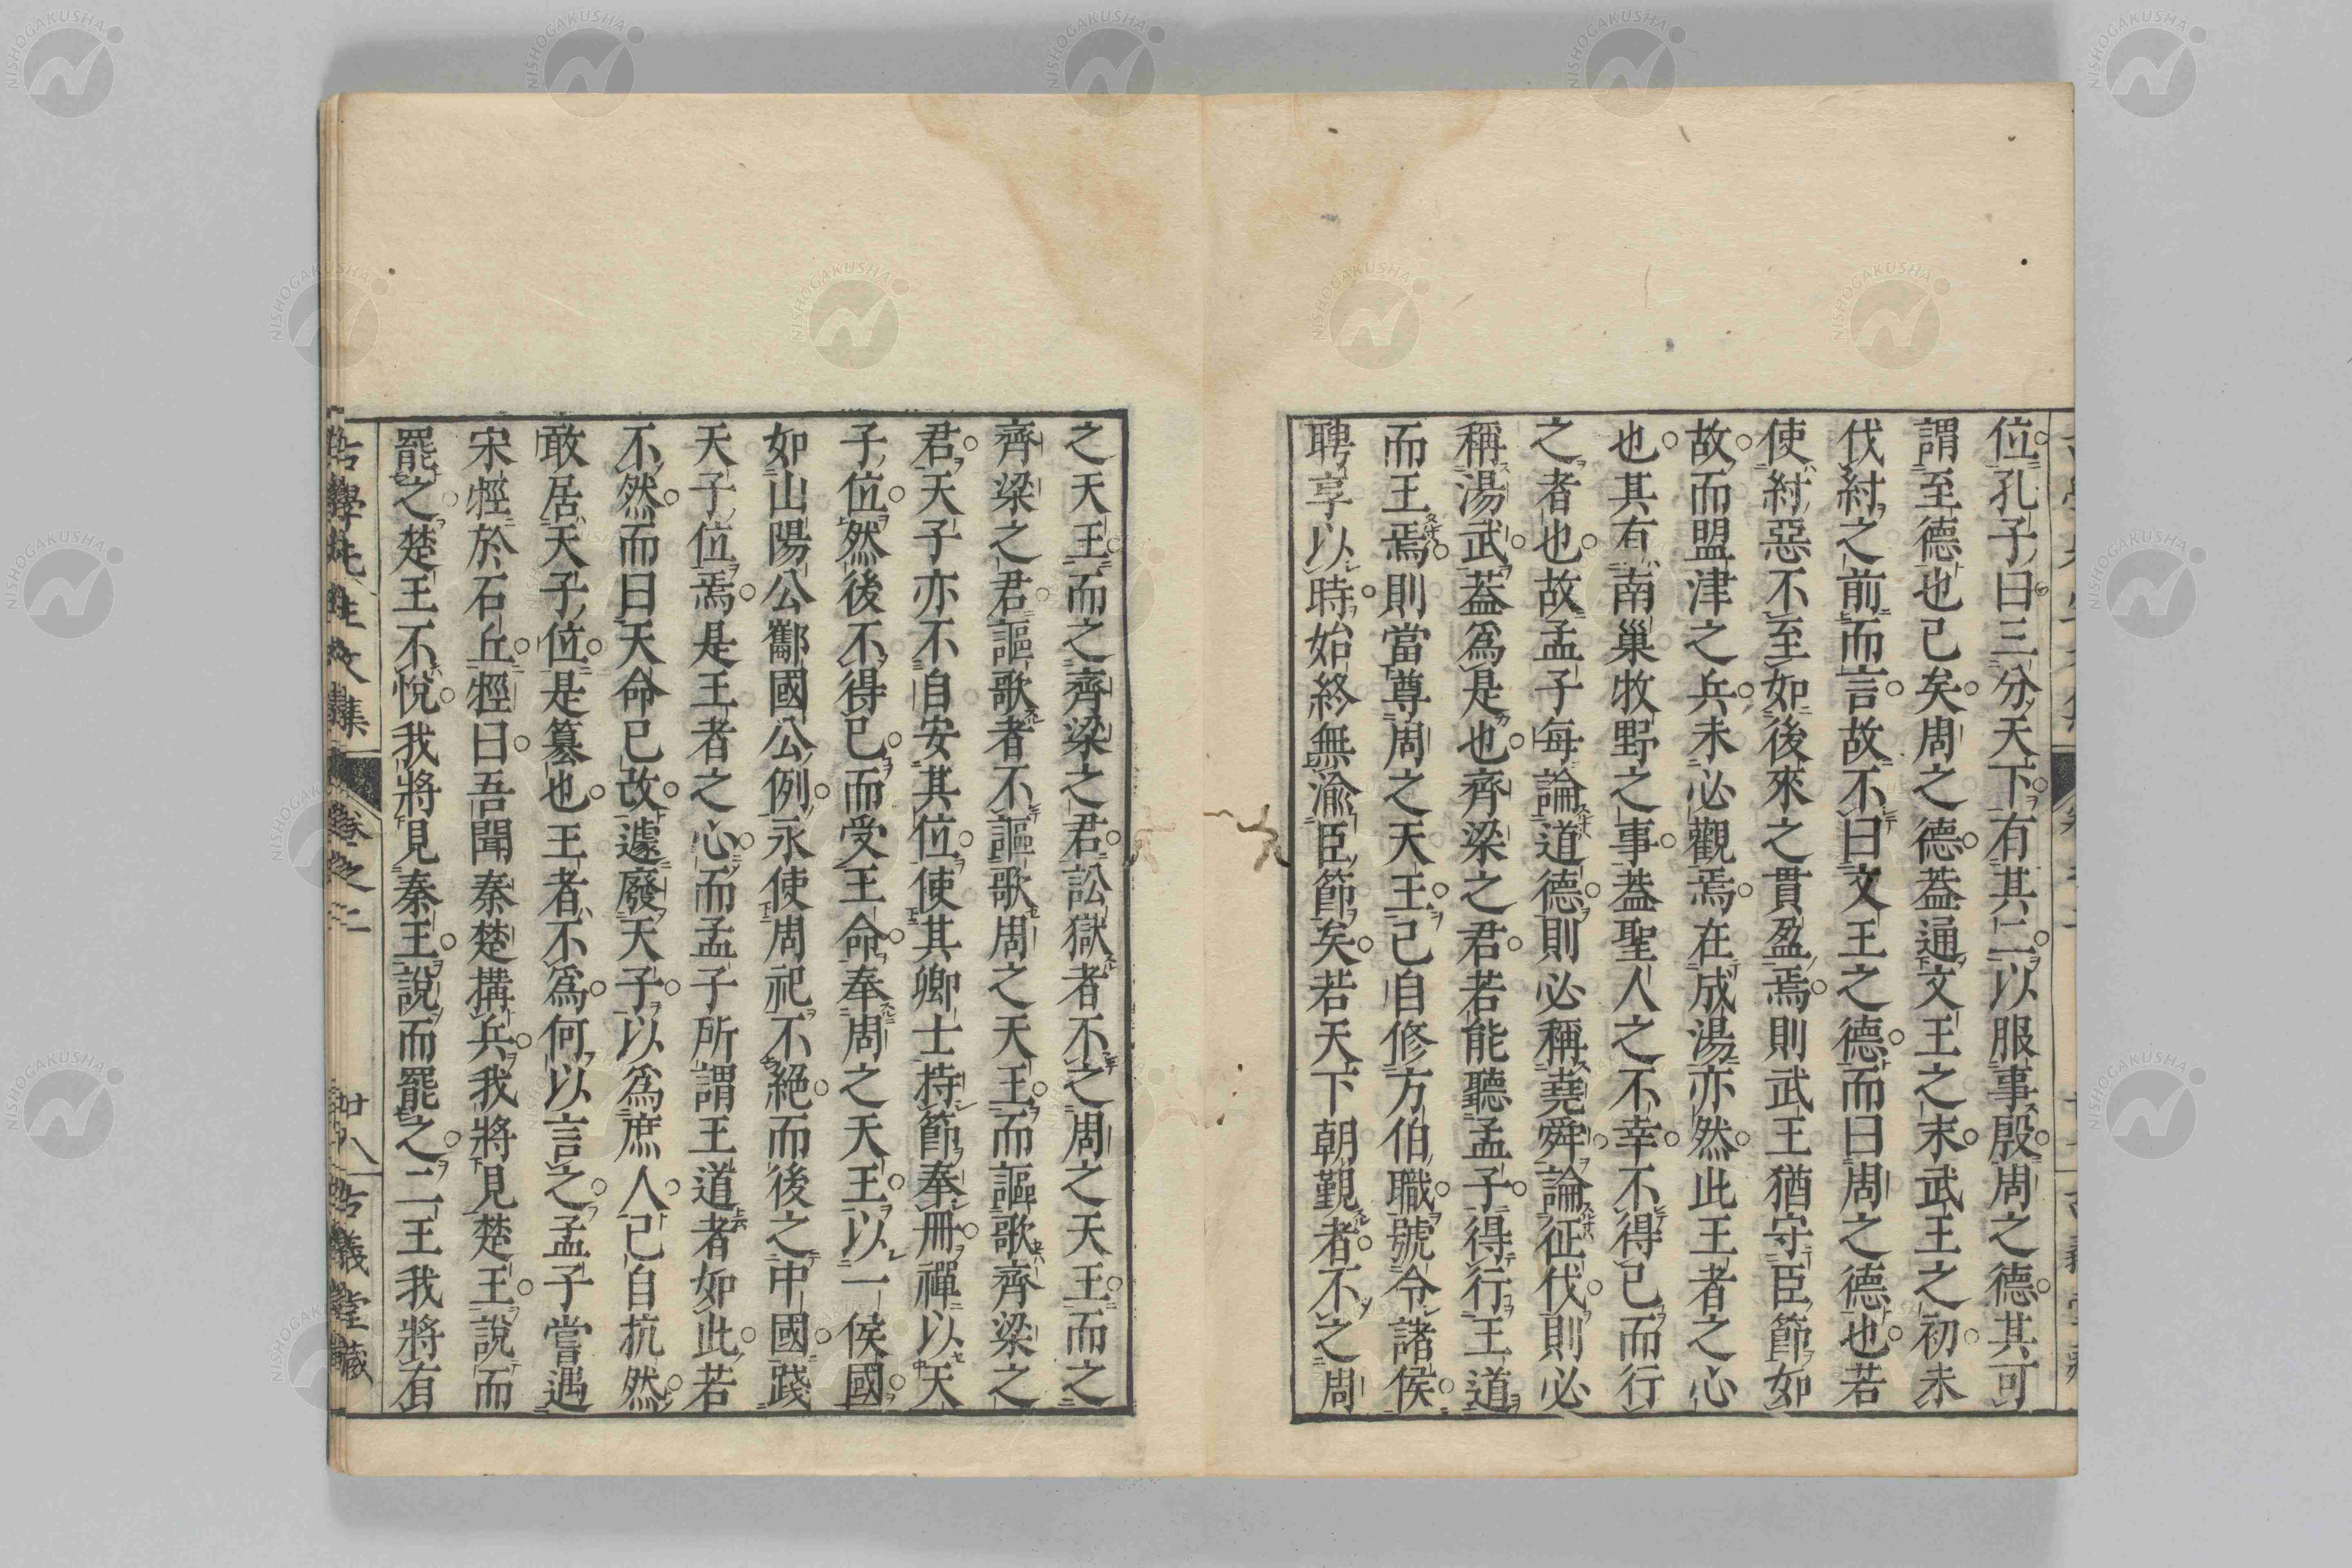 位孔子曰三分天下有其二以服事殷周之德其可
謂至德也已矣周之德蓋通文王之末武王之初未
伐紂之前而言故不曰文王之德而曰周之德也若
使紂惡不至如後來之貫盈焉則武王猶守臣節如
故而盟津之兵未必觀焉在成湯亦然此王者之心
也其有南巢牧野之事蓋聖人之不幸不得已而行
之者也故孟子每論道德則必稱堯舜論征伐則必
稱湯武蓋爲是也齊梁之君若能聽孟子得行王道
而王焉則當尊周之天王己自修方伯職號令諸侯
聘享以時始終無渝臣節矣若天下朝覲者不之周
之天王而之齊梁之君訟獄者不之周之天王而之
齊梁之君謳歌者不謳歌周之天王而謳歌齊梁之
君天子亦不自安其位使其卿士持節奉冊禪以天
子位然後不得已而受王命奉周之天王以一侯國
如山陽公酅國公例永使周祀不絕而後之中國踐
天子位焉是王者之心而孟子所謂王道者如此若
不然而曰天命已改遽廢天子以爲庶人己自抗然
敢居天子位是篡也王者不爲何以言之孟子嘗遇
宋牼於石丘牼曰吾聞秦楚搆兵我將見楚王說而
罷之楚王不悅我將見秦王說而罷之二王我將有
古學先生文集 卷之二 廿八 古義堂藏